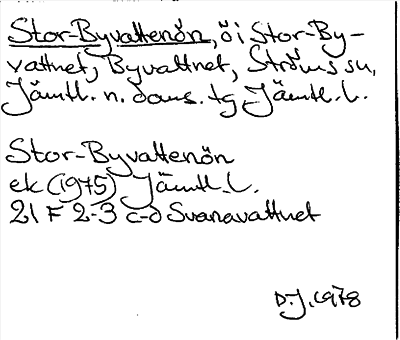 Stor-Byvattenön, ö i Stor-By-
vattnet, Byvattnet, Ströms sn,
Jämtl. n. doms. tg, Jämtl. l.
Stor-Byvattenön
ek (1975) Jämtl. l.
21 F 2-3 c-d Svanavattnet
D.J. 1978